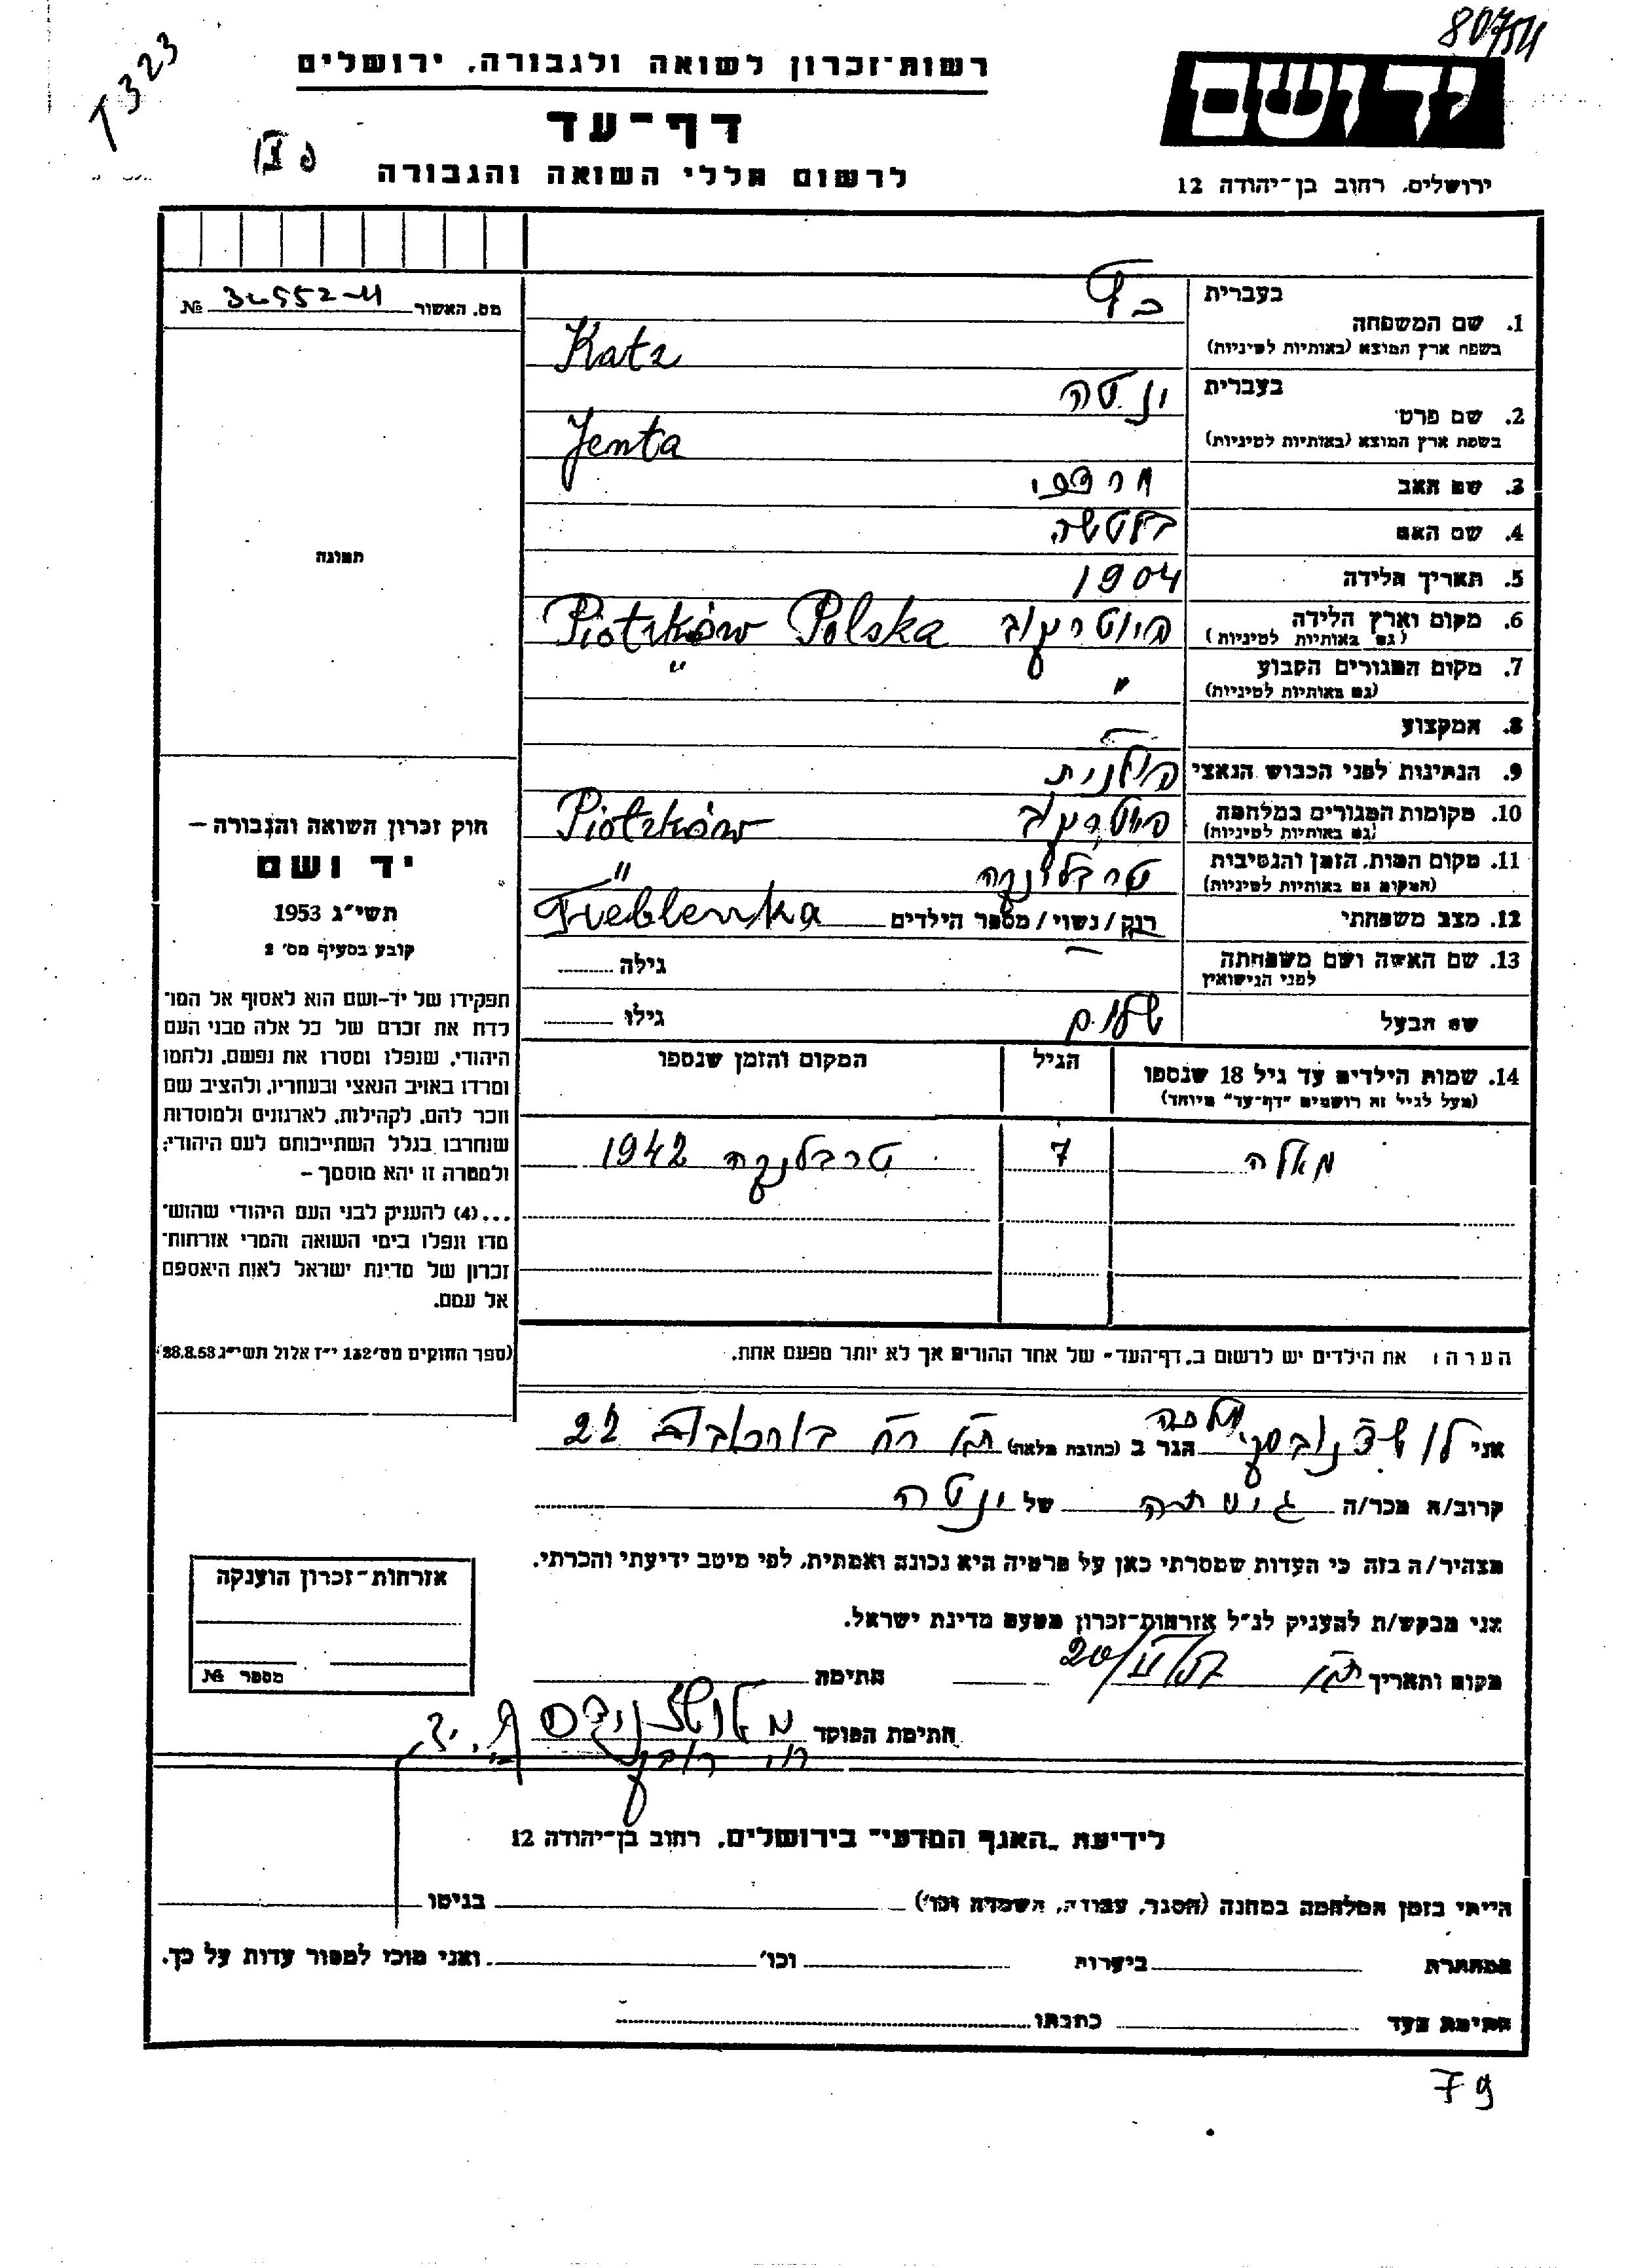 80754
T323
רשות־זכרון לשואה ולגבורה, ירושלים
יד ושם
דף־עד
לרשום חללי השואה והגבורה
ירושלים, רחוב בן־יהודה 12
מס. האשור 30552-11 №
בעברית כץ
1. שם המשפחה
בשפת ארץ המוצא (באותיות לטיניות) Katz
בעברית ינטה
2. שם פרטי
בשפת ארץ המוצא (באותיות לטיניות) Jenta
3. שם האב מרדכי
4. שם האם
5. תאריך הלידה 1904
6. מקום וארץ הלידה פיוטרקוב Piotrków Polska
(גם באותיות לטיניות)
7. מקום המגורים הקבוע " "
(גם באותיות לטיניות)
8. המקצוע —
9. הנתינות לפני הכבוש הנאצי פולנית
10. מקומות המגורים במלחמה פיוטרקוב Piotrków
(גם באותיות לטיניות)
11. מקום המות, הזמן והנסיבות טרבלינקה "
(המקום גם באותיות לטיניות)
12. מצב משפחתי רוק/נשוי/מספר הילדים Treblenka
13. שם האשה ושם משפחתה — גילה
לפני הנישואין
שם הבעל שלום גילו
14. שמות הילדים עד גיל 18 שנספו הגיל המקום והזמן שנספו
(מעל לגיל זה רושמים "דף־עד" מיוחד)
מאלה 7 טרבלנקה 1942
הערה: את הילדים יש לרשום ב„דף־העד" של אחד ההורים אך לא יותר מפעם אחת.
תמונה
חוק זכרון השואה והגבורה –
יד ושם
תשי״ג 1953
קובע בסעיף מס׳ 2
תפקידו של יד־ושם הוא לאסוף אל המו־
לדת את זכרם של כל אלה מבני העם
היהודי, שנפלו ומסרו את נפשם, נלחמו
ומרדו באויב הנאצי ובעוזריו, ולהציב שם
וזכר להם, לקהילות, לארגונים ולמוסדות
שנחרבו בגלל השתייכותם לעם היהודי;
ולמטרה זו יהא מוסמך –
...(4) להעניק לבני העם היהודי שהוש־
מדו ונפלו בימי השואה והמרי אזרחות־
זכרון של מדינת ישראל לאות היאספם
אל עמם.
(ספר החוקים מס׳ 132 י״ז אלול תשי״ג 28.8.53)
אני הגר ב (כתובת מלאה) 22
קרוב/ה מכר/ה גיסתה של ינטה
מצהיר/ה בזה כי העדות שמסרתי כאן על פרטיה היא נכונה ואמתית, לפי מיטב ידיעתי והכרתי.
אני מבקש/ת להעניק לנ״ל אזרחות־זכרון מטעם מדינת ישראל.
מקום ותאריך חתימה
חתימת הפוקד
אזרחות־זכרון הוענקה
מספר №
לידיעת „האגף המדעי" בירושלים, רחוב בן־יהודה 12
הייתי בזמן המלחמה במחנה (הסגר, עבודה, השמדה וכו׳) בגיטו
במחתרת ביערות וכו׳ ואני מוכן למסור עדות על כך.
חתימת העד כתבתו
79